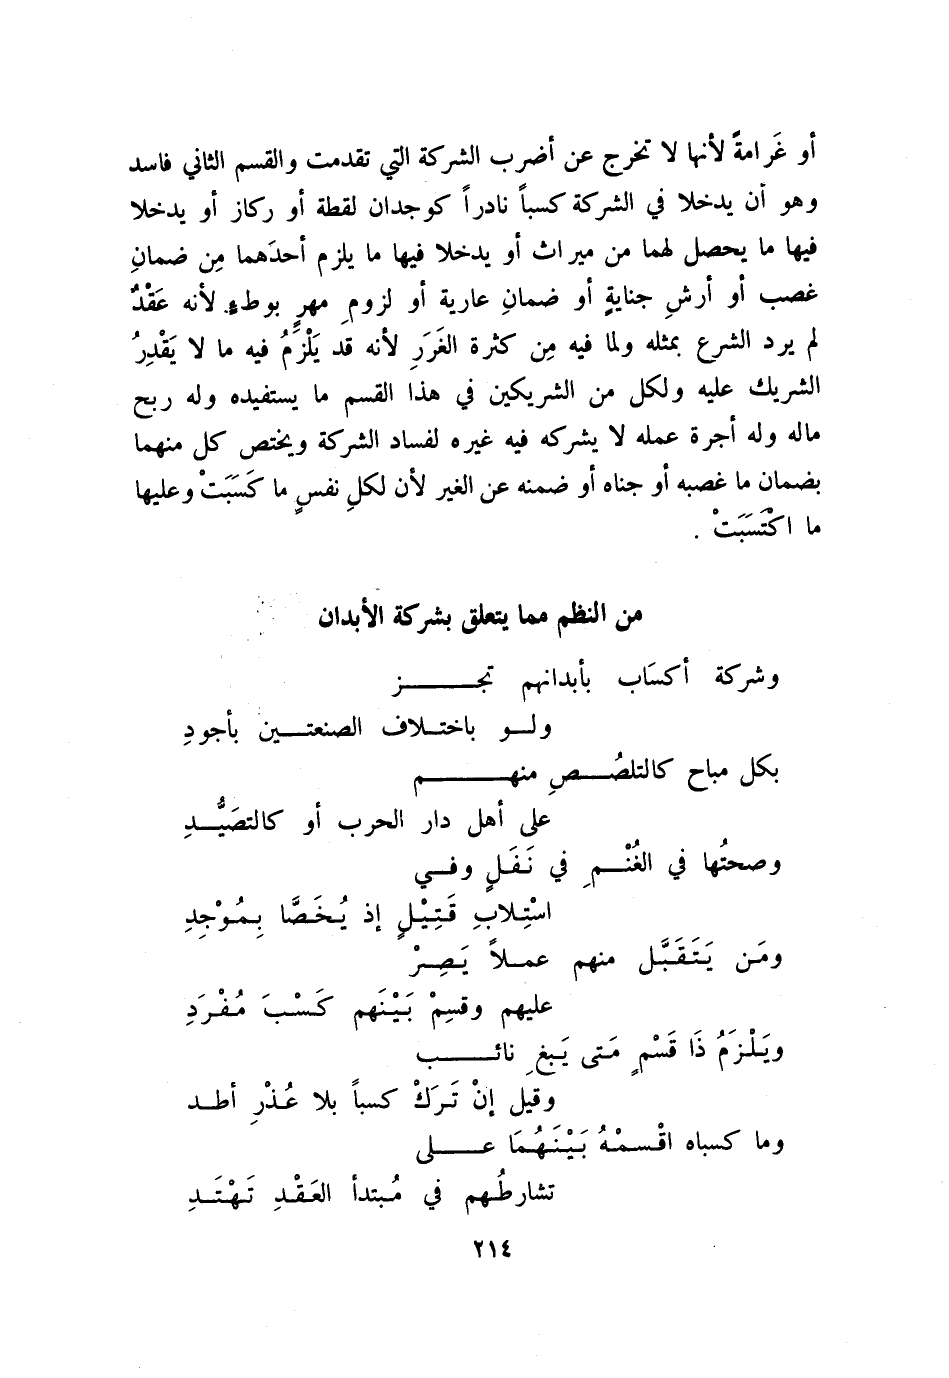 أو غَرامةً لأنها لا تخرج عن أضرب الشركة التي تقدمت والقسم الثاني فاسد
وهو أن يدخلا في الشركة كسباً نادراً كوجدان لقطة أو ركاز أو يدخلا
فيها ما يحصل لهما من ميراث أو يدخلا فيها ما يلزم أحدَهما مِن ضمانِ
غصب أو أرشِ جنايةٍ أو ضمانِ عارية أو لزومِ مهرٍ بوطءٍ لأنه عَقْدٌ
لم يرد الشرع بمثله ولما فيه مِن كثرة الغَرَرِ لأنه قد يَلْزَمُ فيه ما لا يَقْدِرُ
الشريك عليه ولكل من الشريكين في هذا القسم ما يستفيده وله ربح
ماله وله أجرة عمله لا يشركه فيه غيره لفساد الشركة ويختص كل منهما
بضمان ما غصبه أو جناه أو ضمنه عن الغير لأن لكلِ نفسٍ ما كَسَبَتْ وعليها
ما اكْتَسَبَتْ .
من النظم مما يتعلق بشركة الأبدان
وشركة أكسَاب بأبدانهم تجـــــز
ولو باختلاف الصنعتين بأجودِ
بكل مباح كالتلصُصِ منهــــم
على أهل دار الحرب أو كالتصَيُّدِ
وصحتُها في الغُنْمِ في نَفَلٍ وفي
اسْتِلابِ قَتِيْلٍ إذ يُخَصَّا بِمُوْجِدِ
ومَن يَتَقَبَّل منهم عملاً يَصِرْ
عليهم وقسِمْ بَيْنَهم كَسْبَ مُفْرَدِ
ويَلْزَمُ ذَا قَسْمٍ مَتى يَبغِ نائــب
وقيل إنْ تَرَكْ كسباً بلا عُذْرِ أطد
وما كسباه اقْسمْهُ بَيْنَهُمَا عــلى
تشارطُهم في مُبتدأ العَقْدِ تَهْتَدِ
٢١٤